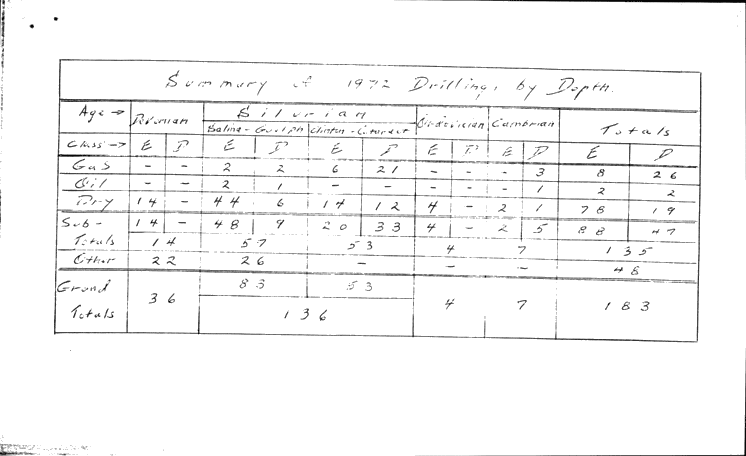 Summary of 1972 Drilling, by Depth.
Age → Devonian Silurian Ordovician Cambrian Totals
Salina-Guelph Clinton-Cataract
Class → E D E D E D E D E D E D
Gas - - 2 2 6 21 - - - 3 8 26
Oil - - 2 1 - - - - - 1 2 2
Dry 14 - 44 6 14 12 4 - 2 1 78 19
Sub- 14 - 48 9 20 33 4 - 2 5 88 47
Totals 14 57 53 4 7 135
Other 22 26 - - - 48
Grand 83 53
Totals 36 136 4 7 183